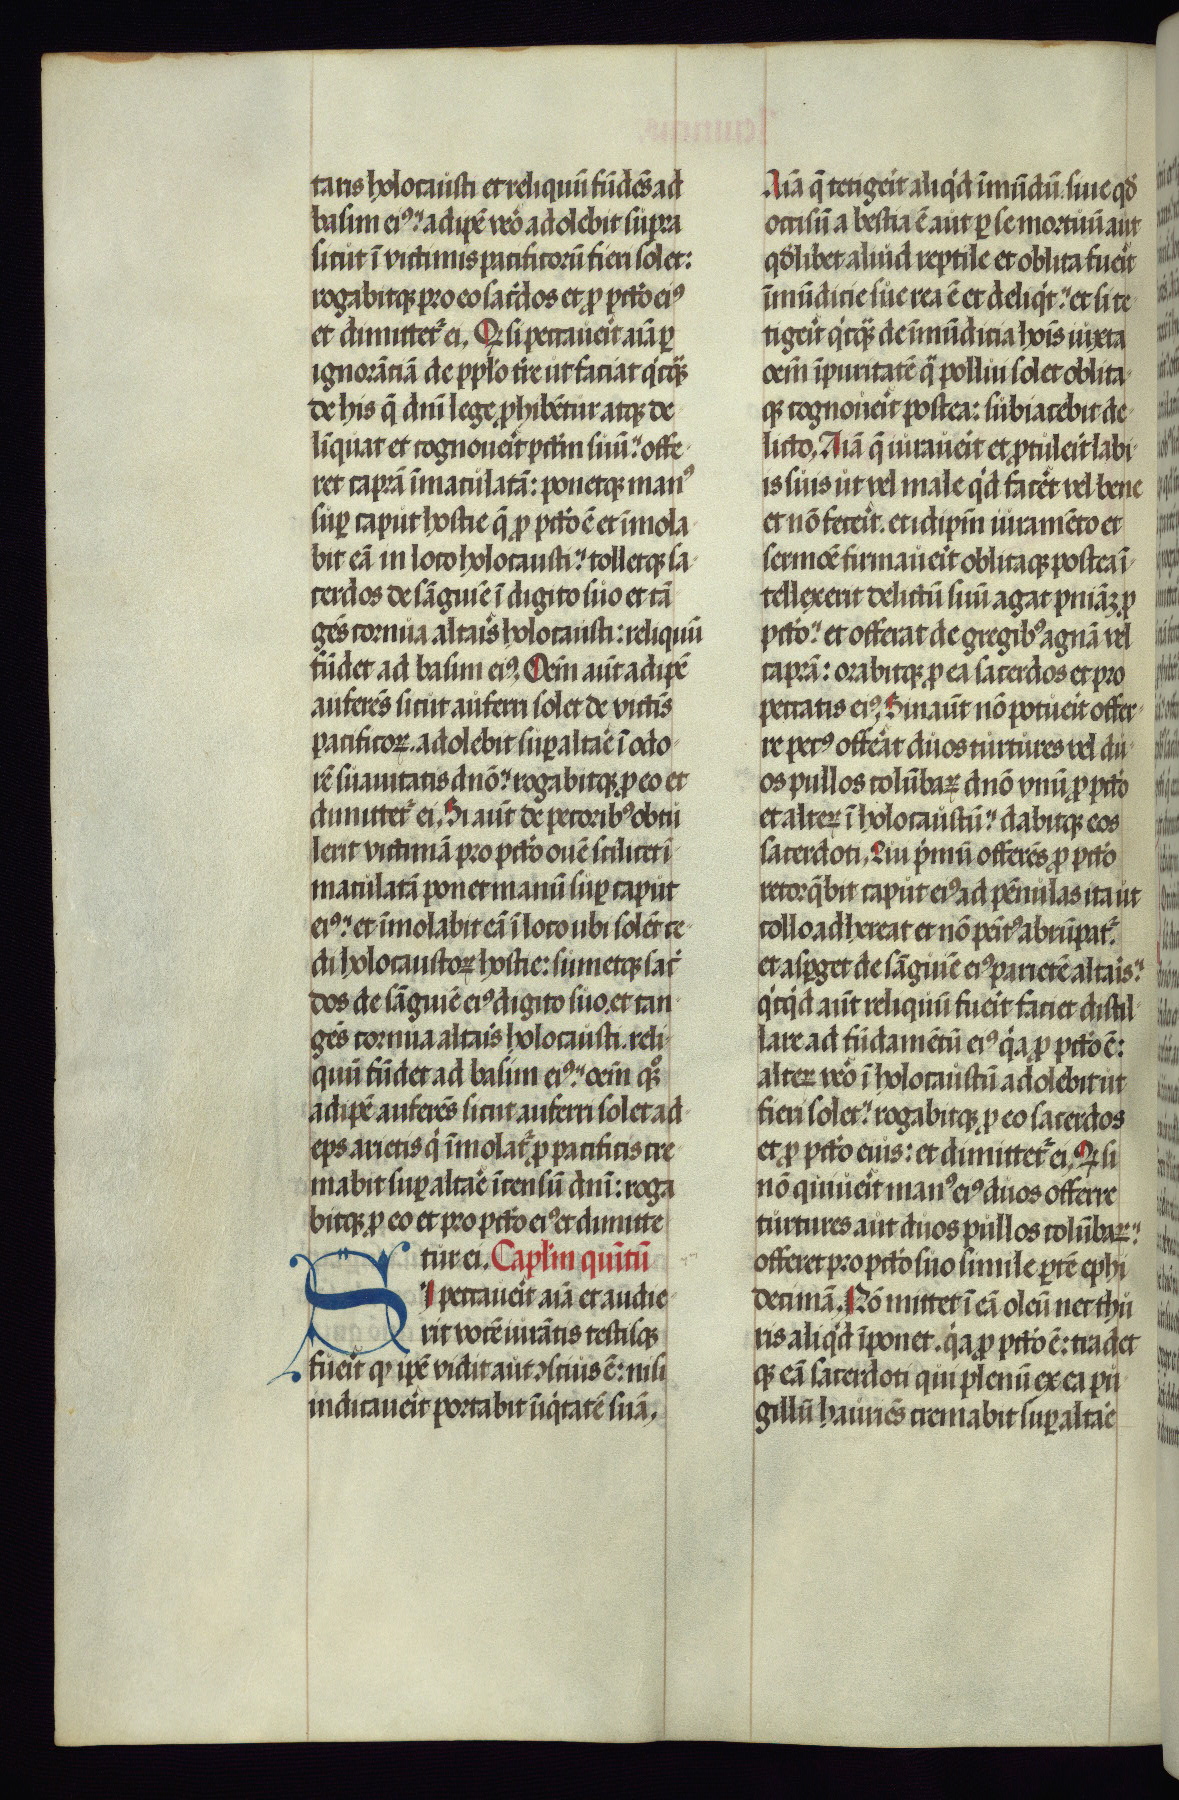 taris holocausti et reliquū fūdēs ad
basim eiꝰ.' adipē veo᷑ adolebit supra
sicut ī victimis pacificorū fieri solet:
rogabitqꝫ pro eo sac̄dos et ꝓ pctō eiꝰ
et dimittet᷑ ei. Qꝛ si peccaueīt aīa ꝑ
ignorātiā de ppl'o t̄re ut faciat q'cqᷓꝫ
de his q̄ dnī lege ꝓhibētur atqꝫ de
līquat et cognoueīt pctm̄ suū.' offe
ret caprā īmaculatā: ponetqꝫ manꝰ
suꝑ caput hostie q̄ ꝓ pctō ē et īmola
bit eā in loco holocausti.' tolletqꝫ sa
cerdos de sāguīe ī digito suo et tā
gēs cornua altaīs holocausti: reliquū
fūdet ad basim eiꝰ. Oēm aūt adipē
auferēs sicut auferri solet de victīs
pacificoꝝ. adolebit suꝑ altāe ī odo
rē suauitatis dnō.' rogabitqꝫ ꝓ eo et
dimittet᷑ ei. Si aūt de pecoribꝰ obtu
lerit victimā pro pctō ouē scilicet ī
maculatā ponet manū suꝑ caput
eiꝰ.' et īmolabit eā ī loco ubi solēt ce
di holocaustoꝝ hostie: sumetqꝫ sac̄
dos de sāguīe eiꝰ digito suo. et tan
gēs cornua altaīs holocausti. reli
quū fūdet ad basim eiꝰ.' oēm qꝫͦ
adipē auferēs sicut auferri solet ad
eps arietis q' īmolat᷑ ꝓ pacificis cre
mabit suꝑ altāe īcensū dnī: roga
bitqꝫ ꝓ eo et pro pctō eiꝰ et dimitte
tur ei. Caplm̄ quītū
SI peccaueīt aīa et audie
rit vocē iurātis testisqꝫ
fueīt qꝙ ipē vidit aut ꝯscius ē: nisi
indicaueīt portabit iīq'tatē suā.
Aīa q̄ tetigeīt aliq'd īmūdū. siue qd̄
occisū a bestia ē aut ꝑ se mortuū aut
qd̄libet aliud reptile et oblita fueīt
īmūdicie sue rea ē et deliq't.' et si te
tigeīt q'cqᷓꝫ de īmūdicia hoīs iuxta
oēm īpuritatē qᷓ pollui solet oblita
qꝫ cognoueīt postea: subiacebit de
licto. Aīa q̄ iuraueīt et ꝓtuleīt labi
is suis ut vel male q'd facēt vel bene
et nō feceīt. et idip̄m iuramēto et
sermoē firmaueīt oblitaqꝫ postea ī
tellexerit delictū suū agat pn̄iāꝫ ꝓ
pctō.' et offerat de gregibꝰ agnā vel
caprā: orabitqꝫ ꝓ ea sacerdos et pro
peccatis eiꝰ. Sin aūt nō potueīt offer
re pecꝰ offeāt duos turtures vel du
os pullos colūbaꝝ dnō vnū ꝓ pctō
et alteꝝ ī holocaustū.' dabitqꝫ eos
sacerdoti. Qui p'mū offerēs ꝓ pctō
retorq̄bit caput eiꝰ ad pēnulas ita ut
collo adhereat et nō peītꝰ abrūpat᷑.
et asꝑget de sāguīe eiꝰ parietē altaīs.'
q'cq'd aūt reliquū fueīt faciet distil
lare ad fūdamētū eiꝰ q'a ꝓ pctō ē:
alteꝝ veo᷑ ī holocaustū adolebit ut
fieri solet.' rogabitqꝫ ꝓ eo sacerdos
et ꝓ pctō eius: et dimittet᷑ ei. Qꝛ si
nō quiueīt manꝰ eiꝰ duos offerre
turtures aut duos pullos colūbaꝝ.'
offeret pro pctō suo simile ꝑtē ephi
decimā. Nō mittet ī eā oleū nec thu
ris aliq'd īponet. q'a ꝓ pctō ē: tradet
qꝫ eā sacerdoti qui plenū ex ea pu
gillū hauriēs cremabit suꝑ altāe